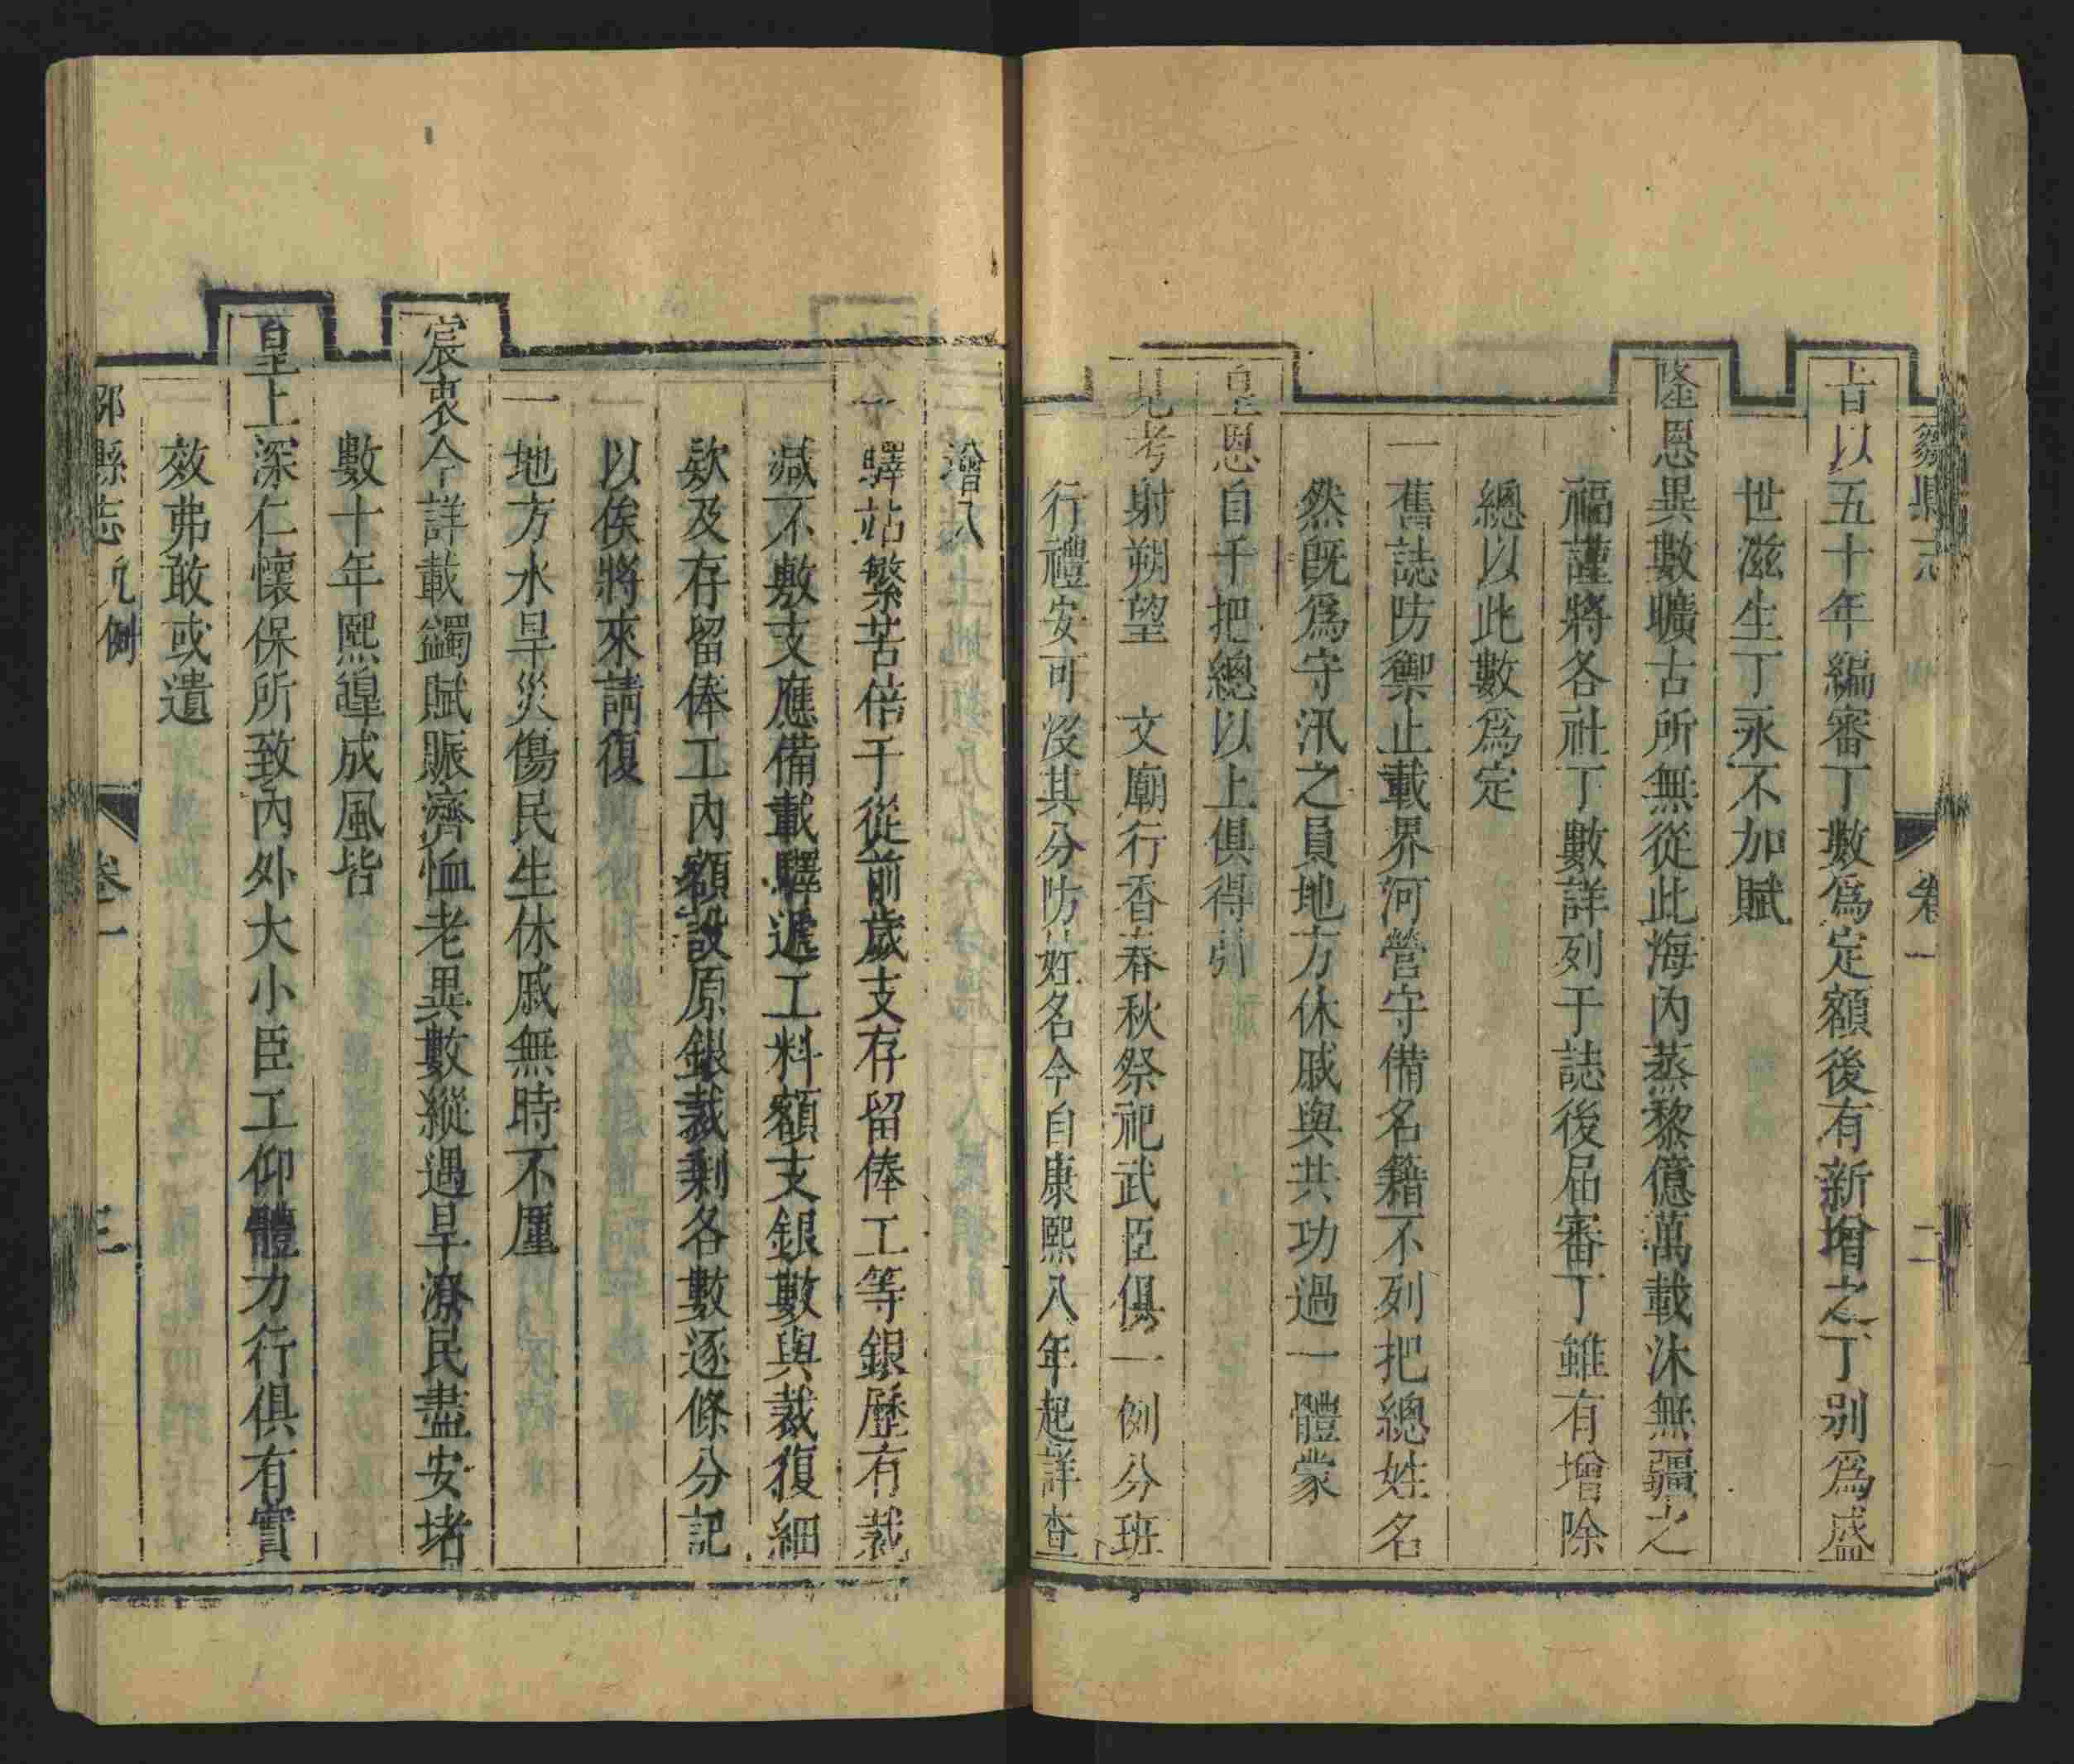 鄒縣志
卷一
二
旨以五十年編審丁數爲定額後有新增之丁别爲盛
世滋生丁永不加賦
隆恩異數曠古所無從此海内蒸黎億萬載沐無疆之
福謹將各社丁數詳列于誌後届審丁雖有增除
總以此數爲定
一舊誌防禦止載界河營守備名籍不列把總姓名
然既爲守汛之員地方休戚與共功過一體蒙
皇恩自千把總以上俱得引
見考射朔望 文廟行香春秋祭祀武臣俱一例分班
行禮安可沒其分防姓名今自康熙八年起詳查
增入
一驛站繁苦倍于從前歲支存留俸工等銀歷有裁
减不敷支應備載驛遞工料額支銀數與裁復細
欵及存留俸工内額設原銀裁剩各數逐條分記
以俟將來請復
一地方水旱災傷民生休戚無時不厪
宸衷今詳載蠲賦賑濟恤老異數縱遇旱潦民盡安堵
數十年熙皥成風皆
皇上深仁懷保所致内外大小臣工仰體力行俱有實
效弗敢或遺
鄒縣志 凡例
卷一
三